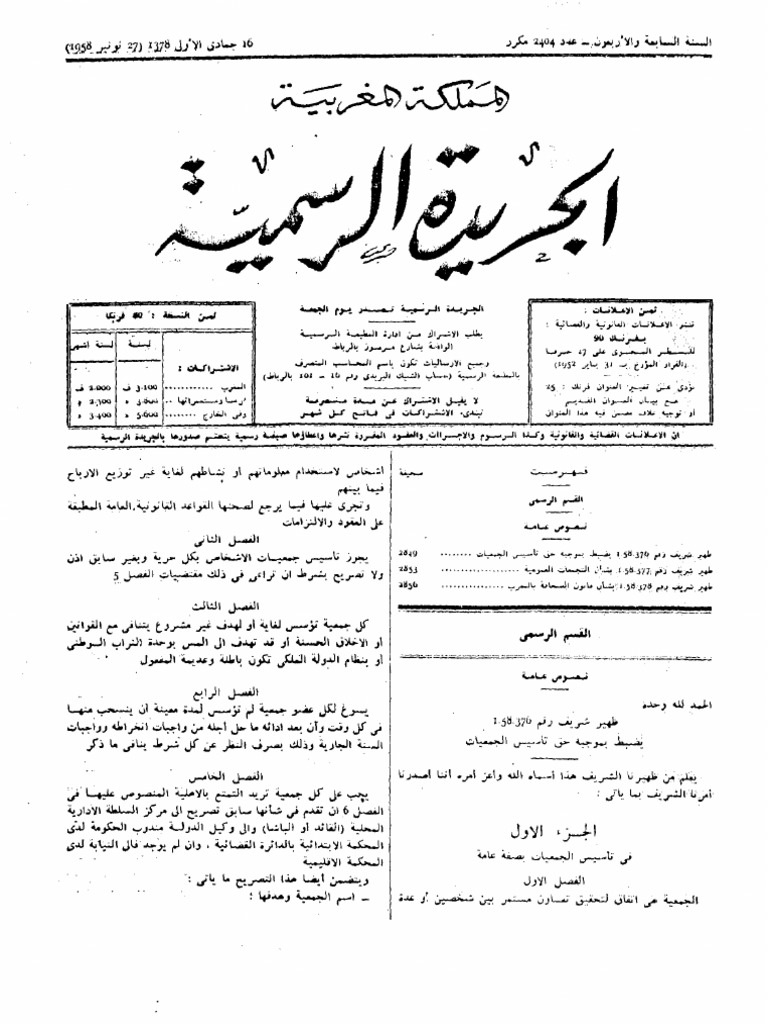 السنة السابعة والأربعون – عدد 2404 مكرر
16 جمادى الأولى 1378 (27 نونبر 1958)
المملكة المغربية
الجريدة الرسمية
ثمن الاعلانات :
تنشر الاعلانات القانونية والقضائية :
بفرنك 90
للسطر المحتوى على 27 حرفا
(القرار المؤرخ بـ 31 يناير 1952)
يؤدى عن تغيير العنوان فرنك : 25
مع بيان العنوان القديم
أو توجيه غلاف مضمن فيه هذا العنوان
الجريدة الرسمية تصدر يوم الجمعة
يطلب الاشتراك من ادارة المطبعة الرسمية
الواقعة بشارع مرموز بالرباط
وجميع الارساليات تكون باسم المحاسب المتصرف
بالمطبعة الرسمية (حساب الشيك البريدى رقم 16 - 101 بالرباط)
لا يقبل الاشتراك عن مدة منصرمة
تبتدى، الاشتراكات فى فاتح كل شهر
ثمن النسخة : 80 فرنكا
الاشتراكات : لسنة لستة اشهر
المغرب 3.100 ف 2.000 ف
فرنسا ومستعمراتها 3.600 » 2.300 »
وفى الخارج 5.600 » 3.400 »
ان الاعلانات القضائية والقانونية وكذا الرسوم والاجراءات والعقود المقررة نشرها واعطاؤها صبغة رسمية يتحتم صدورها بالجريدة الرسمية
فهرست صحيفة
القسم الرسمى
نصوص عامة
ظهير شريف رقم 1.58.376 يضبط بموجبه حق تأسيس الجمعيات 2849
ظهير شريف رقم 1.58.377 بشأن التجمعات العمومية 2853
ظهير شريف رقم 1.58.378 بشأن قانون الصحافة بالمغرب 2856
القسم الرسمى
نصوص عامة
الحمد لله وحده
ظهير شريف رقم 1.58.376
يضبط بموجبه حق تأسيس الجمعيات
يعلم من ظهيرنا الشريف هذا أسماه الله وأعز أمره أننا أصدرنا
أمرنا الشريف بما ياتى :
الجزء الاول
فى تاسيس الجمعيات بصفة عامة
الفصل الاول
الجمعية هى اتفاق لتحقيق تعاون مستمر بين شخصين أو عدة
أشخاص لاستخدام معلوماتهم أو نشاطهم لغاية غير توزيع الارباح
فيما بينهم
وتجرى عليها فيما يرجع لصحتها القواعد القانونية العامة المطبقة
على العقود والالتزامات
الفصل الثانى
يجوز تأسيس جمعيات الاشخاص بكل حرية وبغير سابق اذن
ولا تصريح بشرط ان تراعى فى ذلك مقتضيات الفصل 5
الفصل الثالث
كل جمعية تؤسس لغاية أو لهدف غير مشروع يتنافى مع القوانين
أو الاخلاق الحسنة أو قد تهدف الى المس بوحدة التراب الوطنى
أو بنظام الدولة الملكى تكون باطلة وعديمة المفعول
الفصل الرابع
يسوغ لكل عضو جمعية لم تؤسس لمدة معينة أن ينسحب منها
فى كل وقت وآن بعد ادائه ما حل أجله من واجبات انخراطه وواجبات
السنة الجارية وذلك بصرف النظر عن كل شرط ينافى ما ذكر
الفصل الخامس
يجب على كل جمعية تريد التمتع بالاهلية المنصوص عليها فى
الفصل 6 ان تقدم فى شأنها سابق تصريح الى مركز السلطة الادارية
المحلية (القائد أو الباشا) والى وكيل الدولة مندوب الحكومة لدى
المحكمة الابتدائية بالدائرة القضائية ، وان لم يوجد فالى النيابة لدى
المحكمة الاقليمية
ويتضمن أيضا هذا التصريح ما ياتى :
– اسم الجمعية وهدفها :